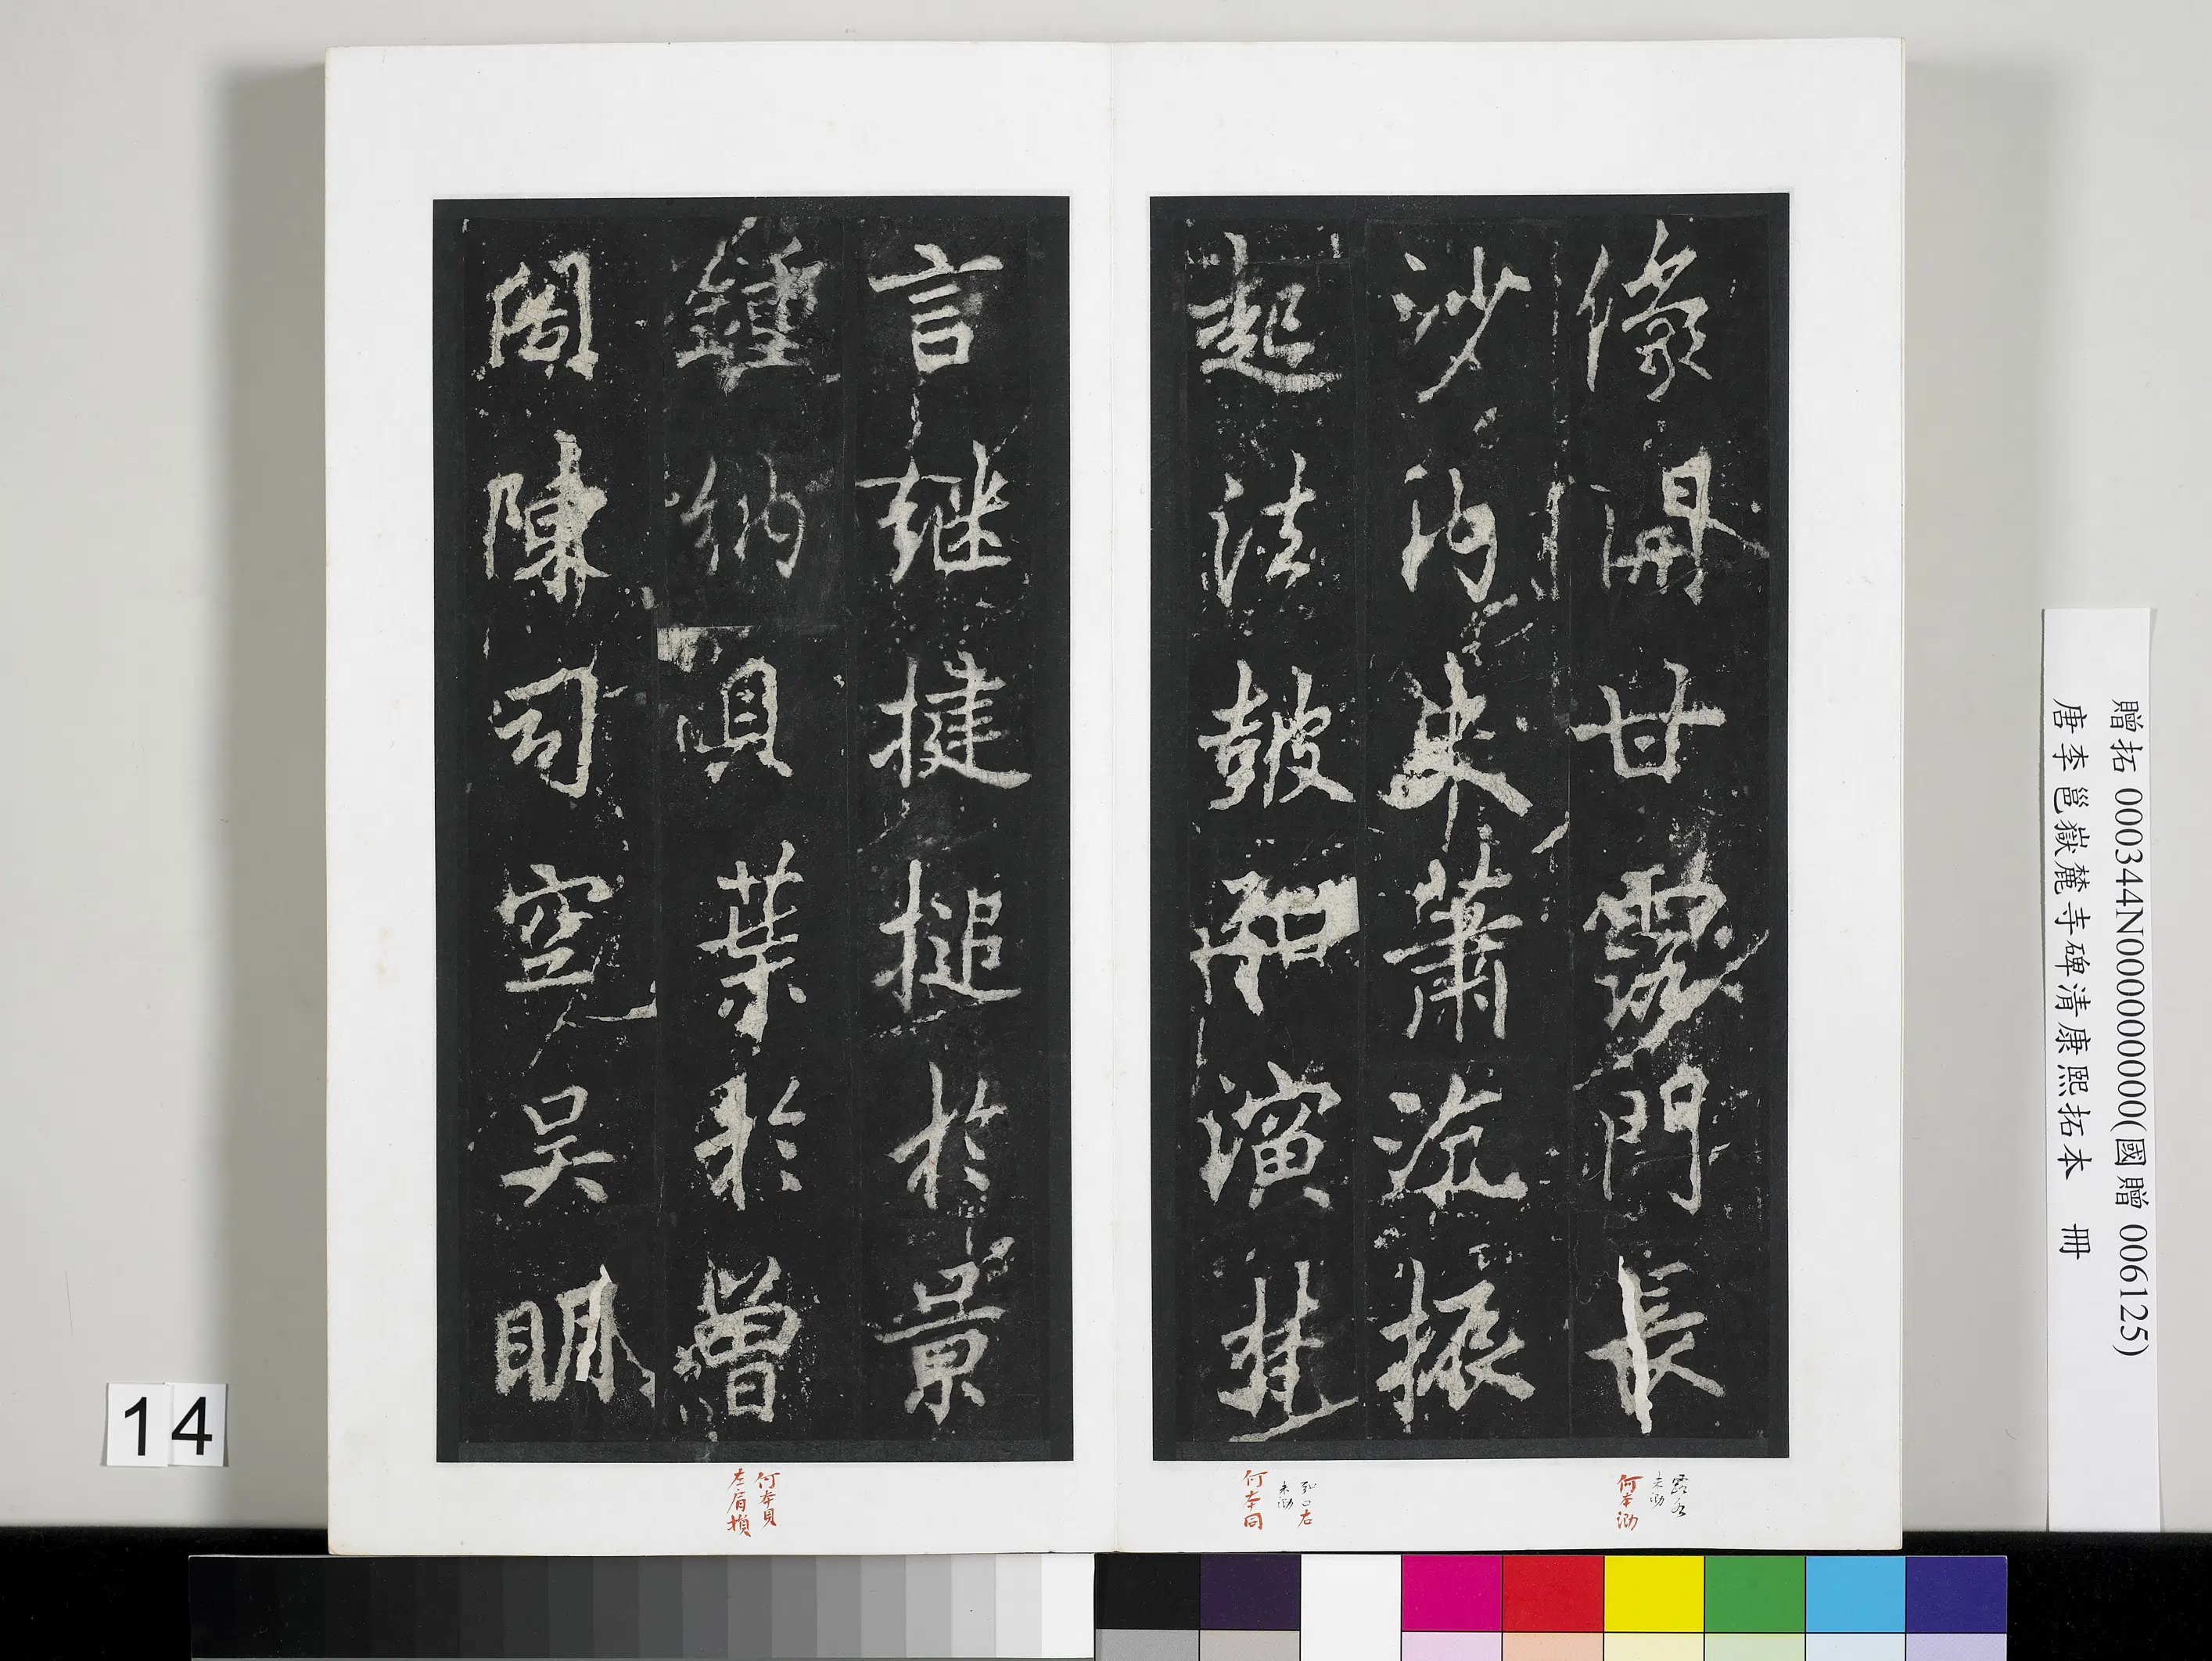 像開甘露門長
沙內史蕭沆振
起法鼓弘演梵
言繼揵搥於景
鍾納唄葉於曾
閣陳司空吳明
露各
未泐
何本泐
弘口右
未泐
何本同
何本貝
左肩損
14
贈拓 000344N000000000(國贈 006125)
唐李邕嶽麓寺碑清康熙拓本 冊